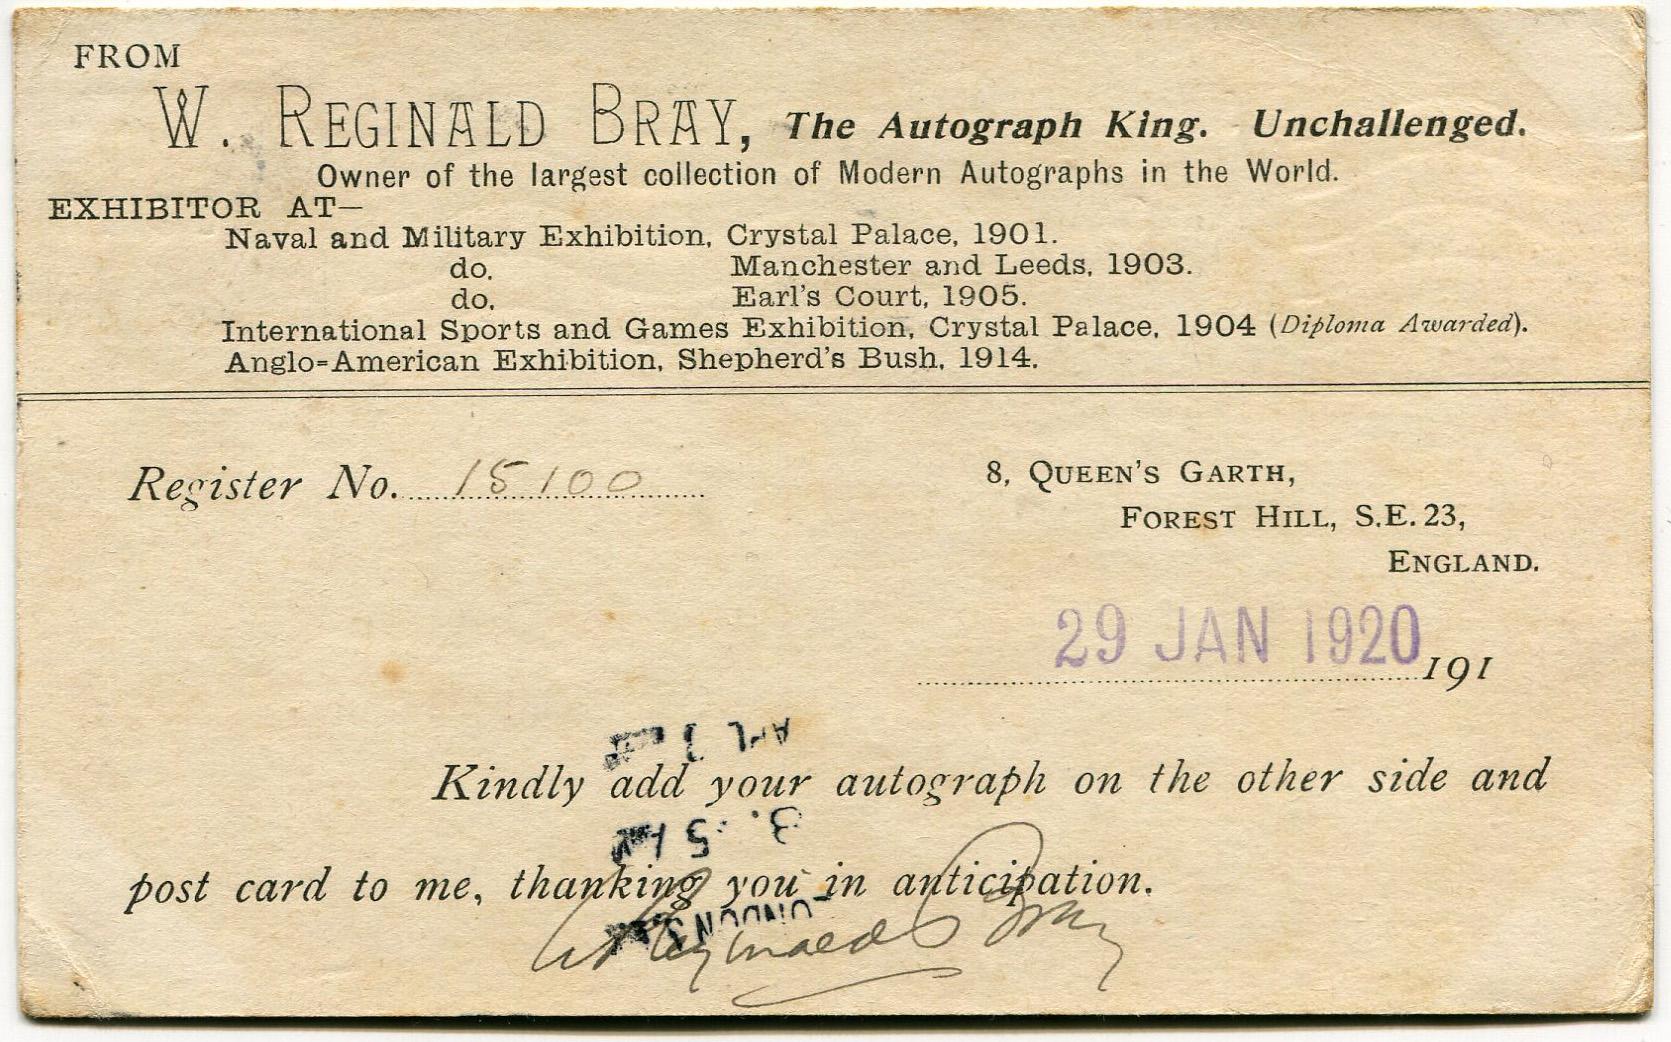 FROM
W. REGINALD BRAY, The Autograph King. Unchallenged.
Owner of the largest collection of Modern Autographs in the World.
EXHIBITOR AT—
Naval and Military Exhibition, Crystal Palace, 1901.
do. Manchester and Leeds, 1903.
do. Earl's Court, 1905.
International Sports and Games Exhibition, Crystal Palace, 1904 (Diploma Awarded).
Anglo=American Exhibition, Shepherd's Bush, 1914.
Register No. 15100
8, QUEEN'S GARTH,
FOREST HILL, S.E. 23,
ENGLAND.
29 JAN 1920 191
Kindly add your autograph on the other side and
post card to me, thanking you in anticipation.
W Reginald Bray
LONDON S